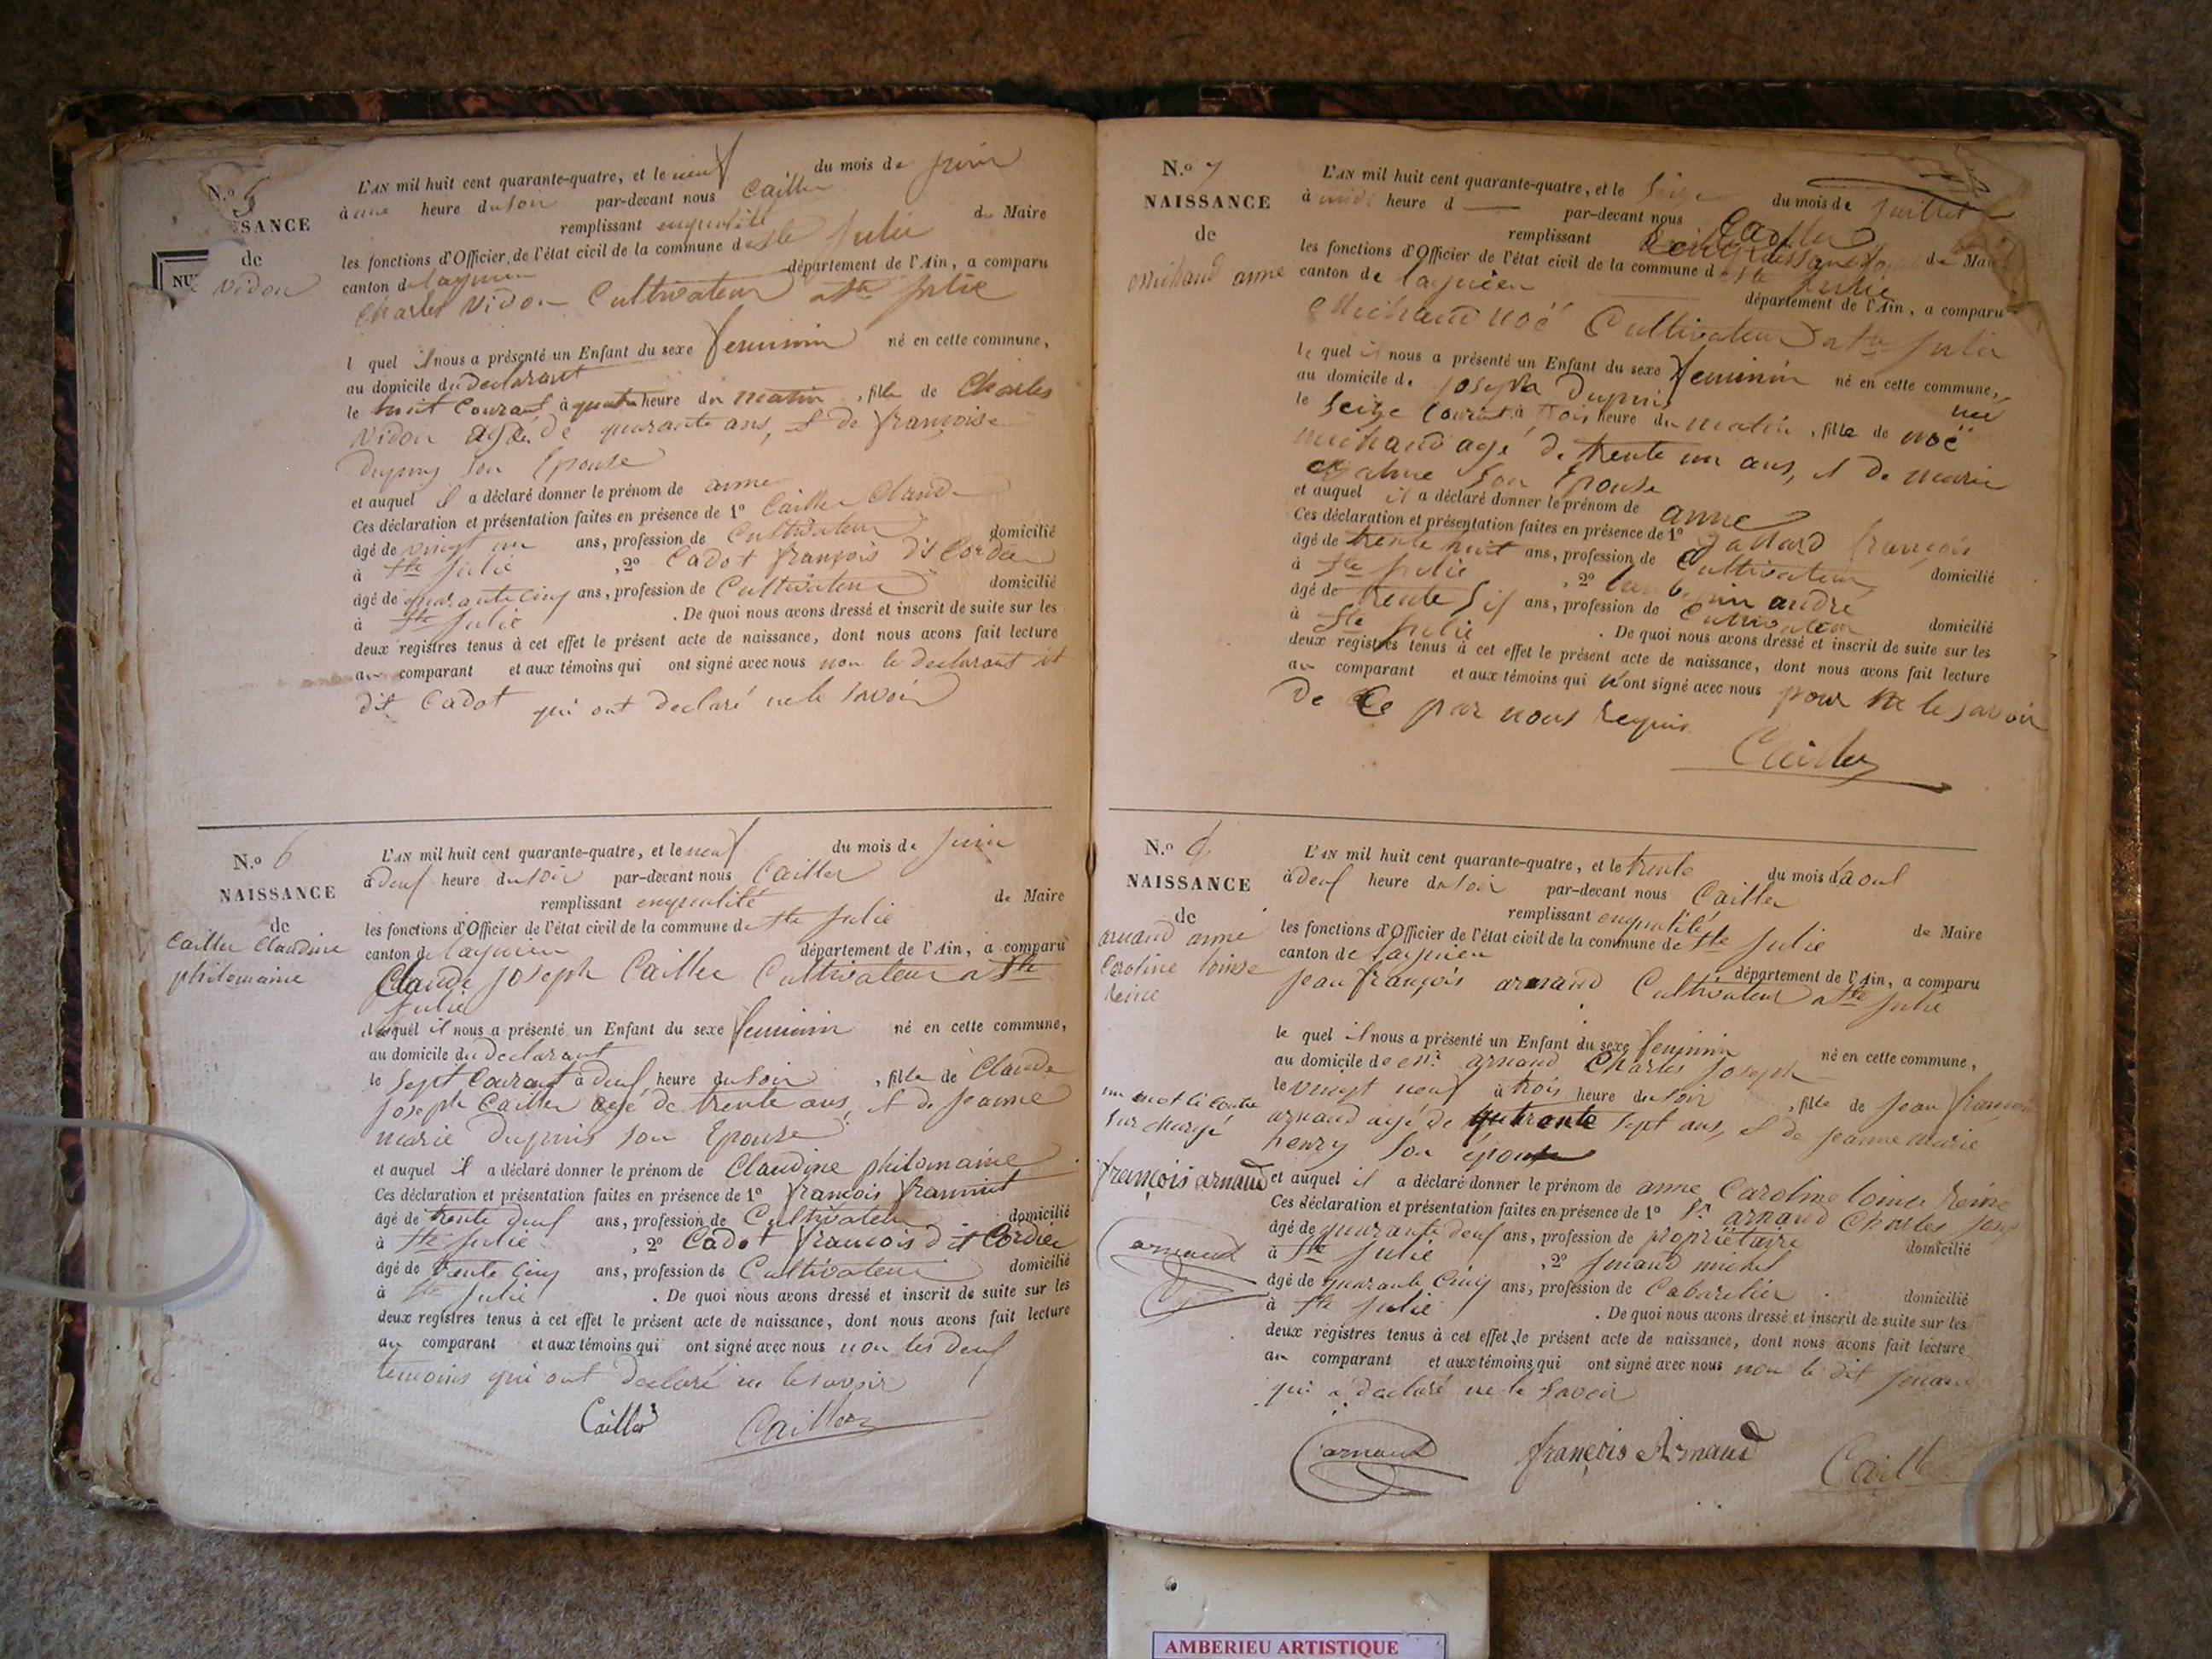 N.o 5
SANCE
de
Vidon
NU
L'AN mil huit cent quarante-quatre, et le neuf du mois de juin
à une heure du soir par-devant nous Cailler
remplissant enqualité de Maire
les fonctions d'Officier de l'état civil de la commune de Ste Julie
canton de lagnieu département de l'Ain, a comparu
Charles Vidon Cultivateur a Ste Julie
l quel il nous a présenté un Enfant du sexe feminin né en cette commune,
au domicile du declarant
le huit Courant à quatre heure du matin, fille de Charles
Vidon agé de quarante ans, et de francoise
Dupuy son Epouse
et auquel il a déclaré donner le prénom de anne
Ces déclaration et présentation faites en présence de 1o Cailler Claude
âgé de vingt un ans, profession de Cultivateur domicilié
à Ste Julie, 2o Cadot françois dit Cordier
âgé de quarante cinq ans, profession de Cultivateur domicilié
à Ste Julie. De quoi nous avons dressé et inscrit de suite sur les
deux registres tenus à cet effet le présent acte de naissance, dont nous avons fait lecture
au comparant et aux témoins qui ont signé avec nous non le declarant et
dit Cadot qui ont declaré ne le savoir
N.o 6
NAISSANCE
de
Cailler Claudine
philomaine
L'AN mil huit cent quarante-quatre, et le neuf du mois de juin
à deux heure du soir par-devant nous Cailler
remplissant enqualité de Maire
les fonctions d'Officier de l'état civil de la commune de Ste Julie
canton de lagnieu département de l'Ain, a comparu
Claude joseph Cailler Cultivateur a Ste
Julie
lequel il nous a présenté un Enfant du sexe feminin né en cette commune,
au domicile du declarant
le sept Courant à deux heure du soir, fille de Claude
joseph Cailler agé de trente ans, et de jeanne
marie Dupuis son Epouse
et auquel il a déclaré donner le prénom de Claudine philomaine
Ces déclaration et présentation faites en présence de 1o francois
âgé de trente deux ans, profession de Cultivateur domicilié
à Ste Julie, 2o Cadot francois dit Cordier
âgé de trente cinq ans, profession de Cultivateur domicilié
à Ste Julie. De quoi nous avons dressé et inscrit de suite sur les
deux registres tenus à cet effet le présent acte de naissance, dont nous avons fait lecture
au comparant et aux témoins qui ont signé avec nous non les deux
temoins qui ont declaré ne le savoir
Cailler Cailler
N.o 7
NAISSANCE
de
Michaud anne
L'AN mil huit cent quarante-quatre, et le seize du mois de juillet
à midi heure d par-devant nous Cailler
remplissant de Maire
les fonctions d'Officier de l'état civil de la commune de Ste Julie
canton de lagnieu département de l'Ain, a comparu
Michaud noé Cultivateur a Ste Julie
le quel il nous a présenté un Enfant du sexe feminin né en cette commune,
au domicile de joseph Dupuis
le seize Courant à trois heure du matin, fille de noë
michaud agé de trente un ans, et de marie
son Epouse
et auquel il a déclaré donner le prénom de anne
Ces déclaration et présentation faites en présence de 1o françois
âgé de trente huit ans, profession de Cultivateur domicilié
à Ste Julie, 2o andré
âgé de trente six ans, profession de Cultivateur domicilié
à Ste Julie. De quoi nous avons dressé et inscrit de suite sur les
deux registres tenus à cet effet le présent acte de naissance, dont nous avons fait lecture
au comparant et aux témoins qui n'ont signé avec nous pour ne le savoir
De Ce par nous requis
Cailler
N.o
NAISSANCE
de
arnaud anne
Caroline louise
reine
L'AN mil huit cent quarante-quatre, et le trente du mois d'aout
à deux heure du soir par-devant nous Cailler
remplissant enqualité de Maire
les fonctions d'Officier de l'état civil de la commune de Ste Julie
canton de lagnieu département de l'Ain, a comparu
jean françois arnaud Cultivateur a Ste Julie
le quel il nous a présenté un Enfant du sexe feminin né en cette commune,
au domicile de arnaud Charles joseph
le vingt neuf à trois heure du soir, fille de jean françois
un mot ci contre
sur chargé
arnaud agé de quarante sept ans, et de jeanne marie
henry son épouse
françois arnaud
arnaud
et auquel il a déclaré donner le prénom de anne Caroline louise reine
Ces déclaration et présentation faites en présence de 1o Sr arnaud Charles
âgé de quarante deux ans, profession de propriëtaire domicilié
à Ste Julie, 2o michel
âgé de quarante Cinq ans, profession de Cabaretier domicilié
à Ste Julie. De quoi nous avons dressé et inscrit de suite sur les
deux registres tenus à cet effet le présent acte de naissance, dont nous avons fait lecture
au comparant et aux témoins qui ont signé avec nous non le dit
qui a declaré ne le savoir
arnaud françois Arnaud Cailler
AMBERIEU ARTISTIQUE